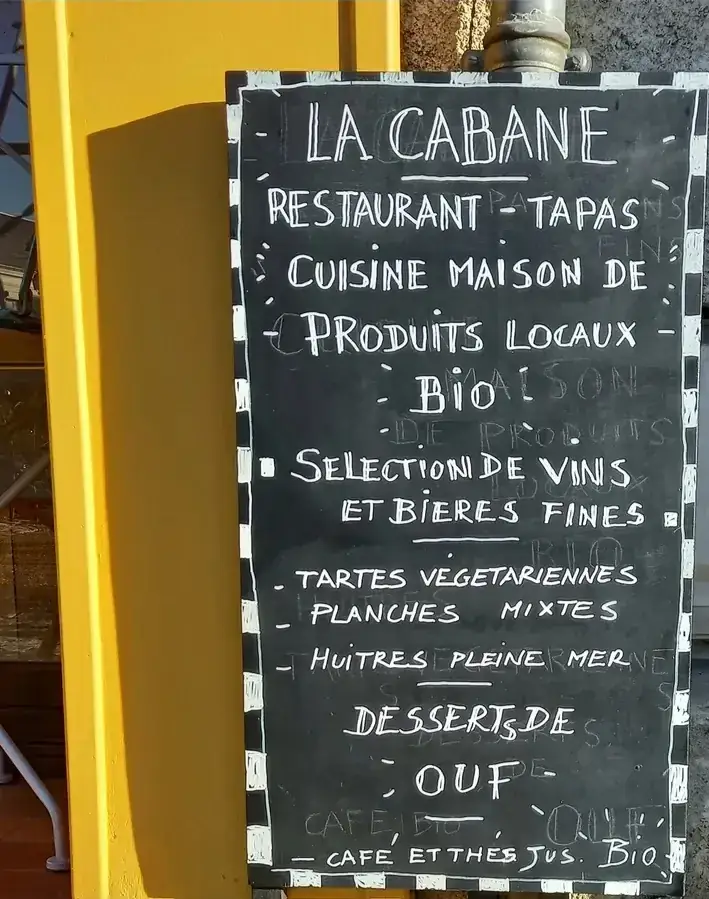 LA CABANE
RESTAURANT - TAPAS
CUISINE MAISON DE
PRODUITS LOCAUX
BIO
SELECTION DE VINS
ET BIERES FINES
- TARTES VÉGETARIENNES
- PLANCHES MIXTES
- HUITRES PLEINE MER
DESSERTS DE
OUF
- CAFÉ ET THÉS JUS. BIO